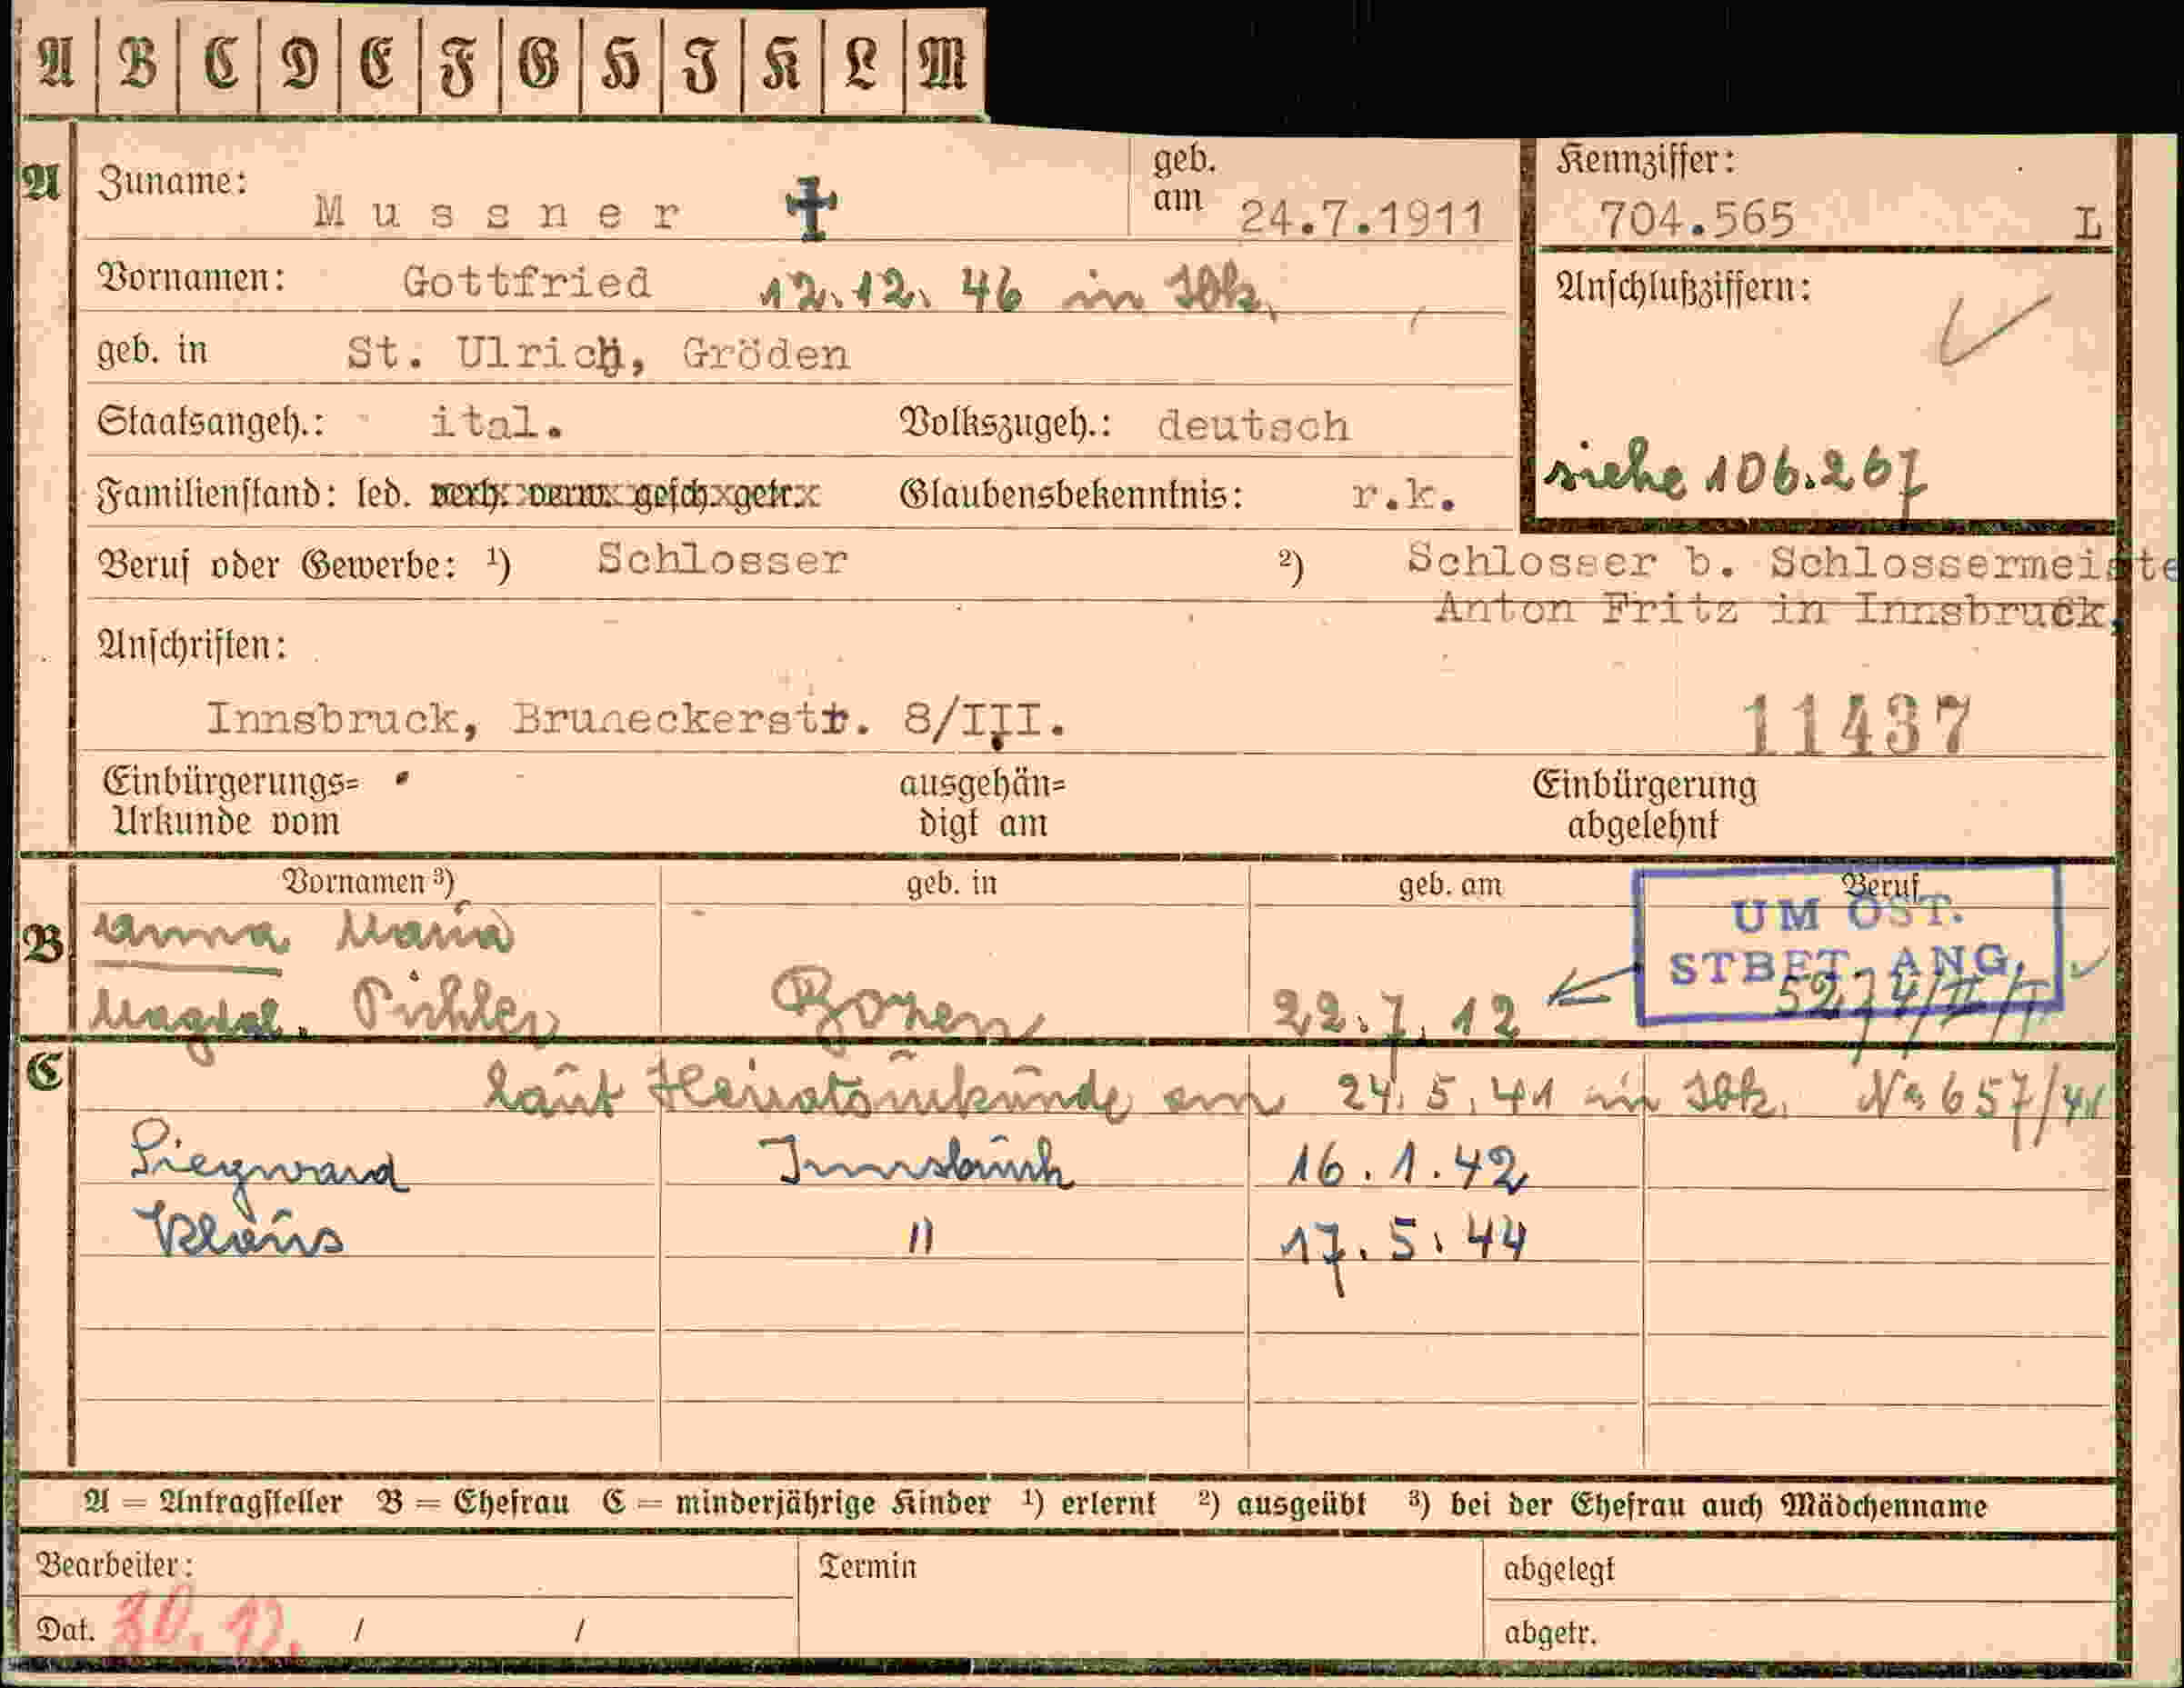 A B C D E F G H I K L M
A Zuname: Mussner ✝ geb. am 24.7.1911
Kennziffer: 704.565 L
Vornamen: Gottfried 12.12.46 in Ibk.
Anschlußziffern:
geb. in St. Ulrich, Gröden
Staatsangeh.: ital. Volkszugeh.: deutsch
siehe 106.267
Familienstand: led. verh. verw. gesch. getr. Glaubensbekenntnis: r.k.
Beruf oder Gewerbe: 1) Schlosser 2) Schlosser b. Schlossermeiste
Anton Fritz in Innsbruck,
Anschriften:
Innsbruck, Bruneckerstr. 8/III. 11437
Einbürgerungs= Urkunde vom
ausgehän= digt am
Einbürgerung abgelehnt
Vornamen 3) geb. in geb. am Beruf
UM ÖST.
STBET. ANG.
5274/II/I
B Anna Maria
Magdal. Pichler Bozen 22.7.12
C
laut Heiratsurkunde am 24.5.41 in Ibk. No 657/41
Siegward Innsbruck 16.1.42
Klaus " 17.5.44
A = Antragsteller B = Ehefrau C = minderjährige Kinder 1) erlernt 2) ausgeübt 3) bei der Ehefrau auch Mädchenname
Bearbeiter: Termin abgelegt
Dat. / / abgetr.